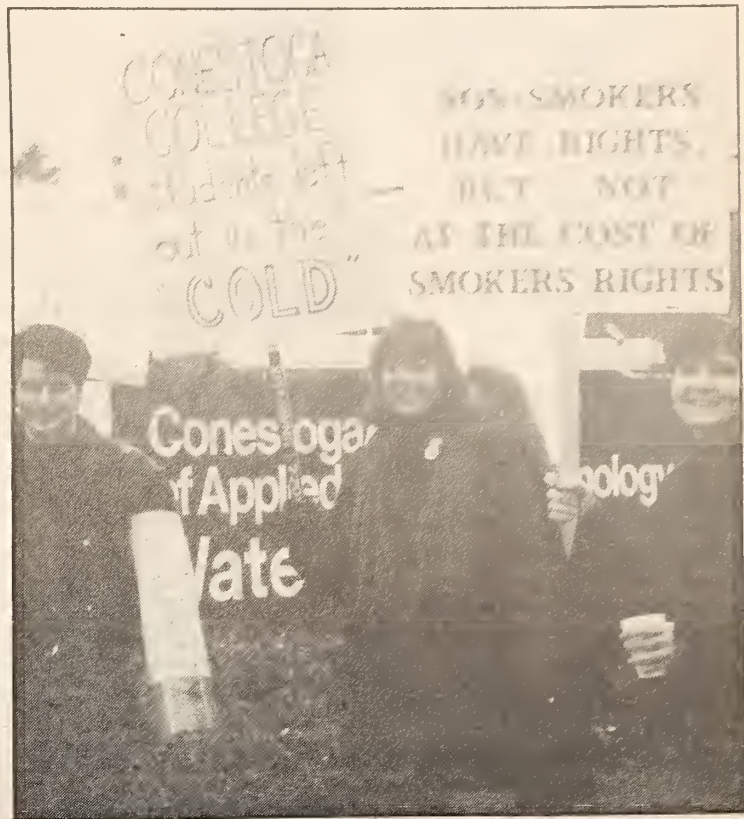 CONESTOGA
COLLEGE
" students left
out in the
"COLD"
NON-SMOKERS
HAVE RIGHTS,
BUT NOT
AT THE COST OF
SMOKERS RIGHTS
Conestoga
of Applied
nology
Wate